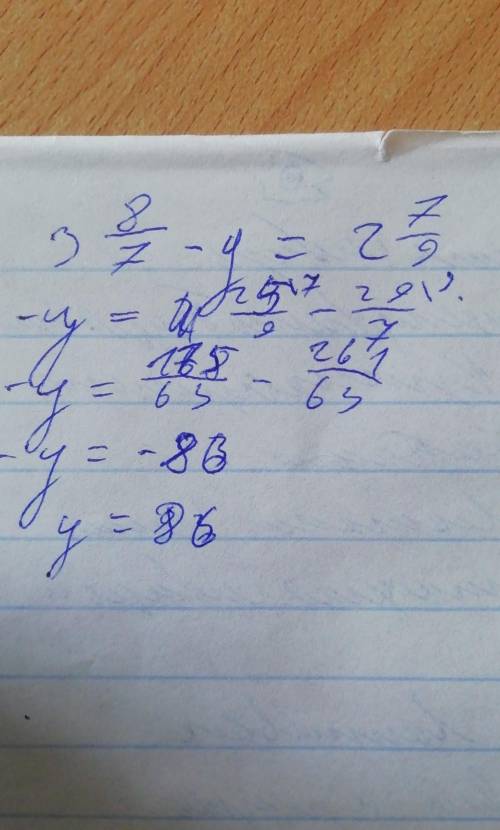 3 8/7 - y = 2 7/9
-y = 25\7/9 - 29\9/7
-y = 175/63 - 261/63
-y = -86
y = 86